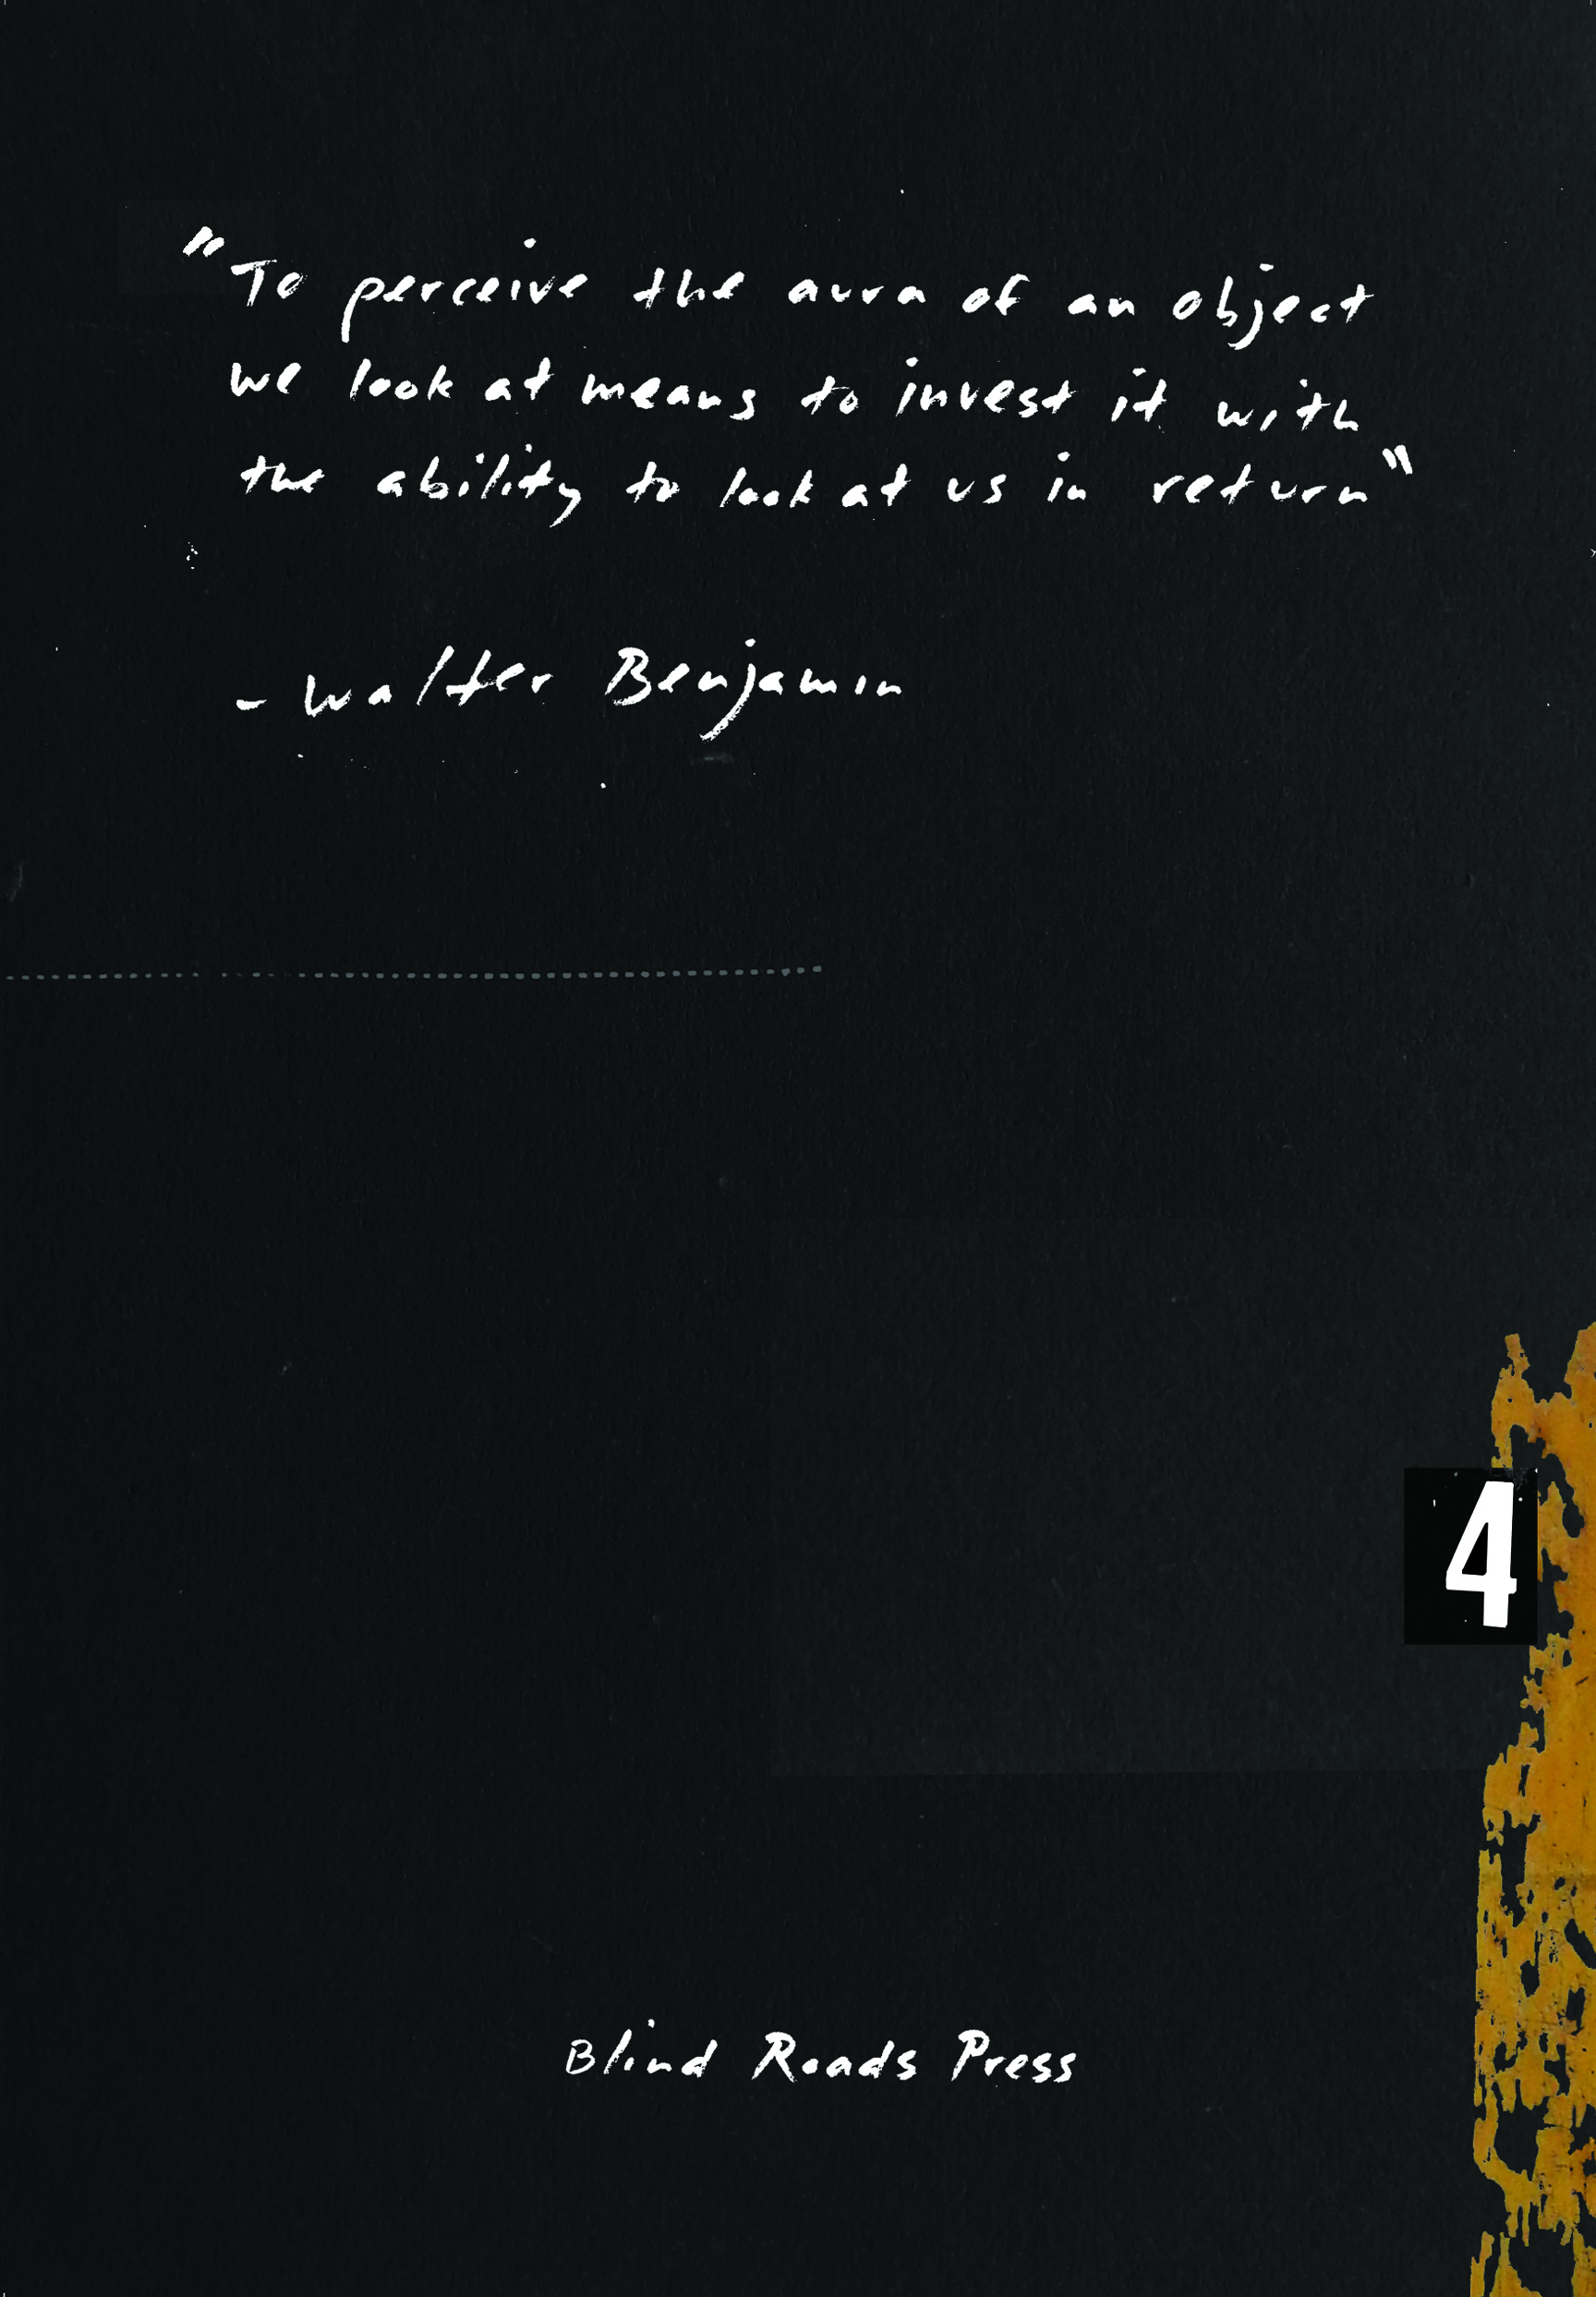 "To perceive the aura of an object
we look at means to invest it with
the ability to look at us in return"
- Walter Benjamin
4
Blind Roads Press